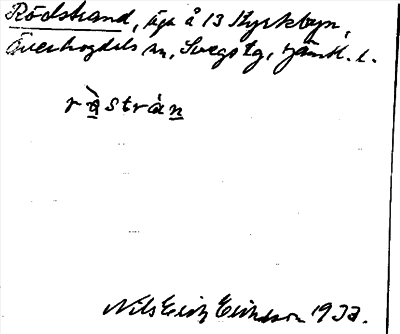 Rödstrand, äga å 13 Kyrkbyn,
Överhogdals sn, Svegs tg, Jämtl. l.
rö̀stràn
Nils Erik Eriksson 1932.